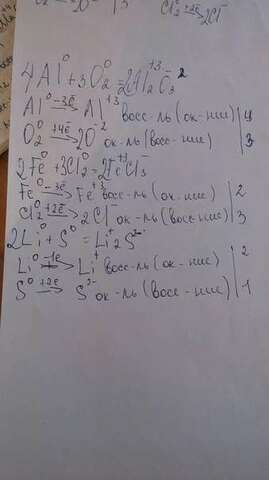 Cl₂⁰ +2ē → 2Cl⁻
4Al⁰ + 3O₂⁰ = 2Al₂⁺³O₃⁻²
Al⁰ -3ē → Al⁺³ восс-ль (ок-ние) | 4
O₂⁰ +4ē → 2O⁻² ок-ль (восс-ние) | 3
2Fe⁰ + 3Cl₂⁰ = 2Fe⁺³Cl₃⁻
Fe⁰ -3ē → Fe⁺³ восс-ль (ок-ние) | 2
Cl₂⁰ +2ē → 2Cl⁻ ок-ль (восс-ние) | 3
2Li⁰ + S⁰ = Li⁺₂S²⁻
Li⁰ -1ē → Li⁺ восс-ль (ок-ние) | 2
S⁰ +2ē → S²⁻ ок-ль (восс-ние) | 1